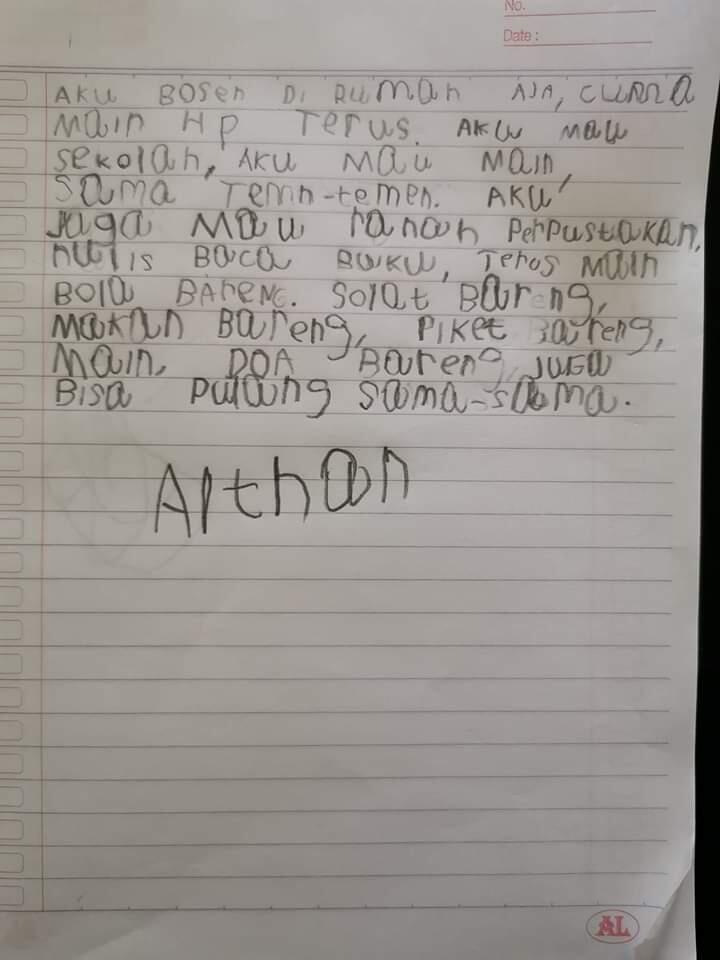 No.
Date :
AKU BOSEN DI RUMAH AJA, CUMA
MAIN HP TERUS. AKU MAU
SEKOLAH, AKU MAU MAIN,
SAMA TEMN-TEMEN. AKU
JAGA MAU PERPUSTAKAN,
NULIS BACA BUKU, TEROS MAIN
BOLA BARENG. SOLAT BARENG,
MAKAN BARENG, PIKET BARENG,
MAIN, DOA BARENG, JUGA
BISA PULANG SAMA-SAMA.
Arthan
AL